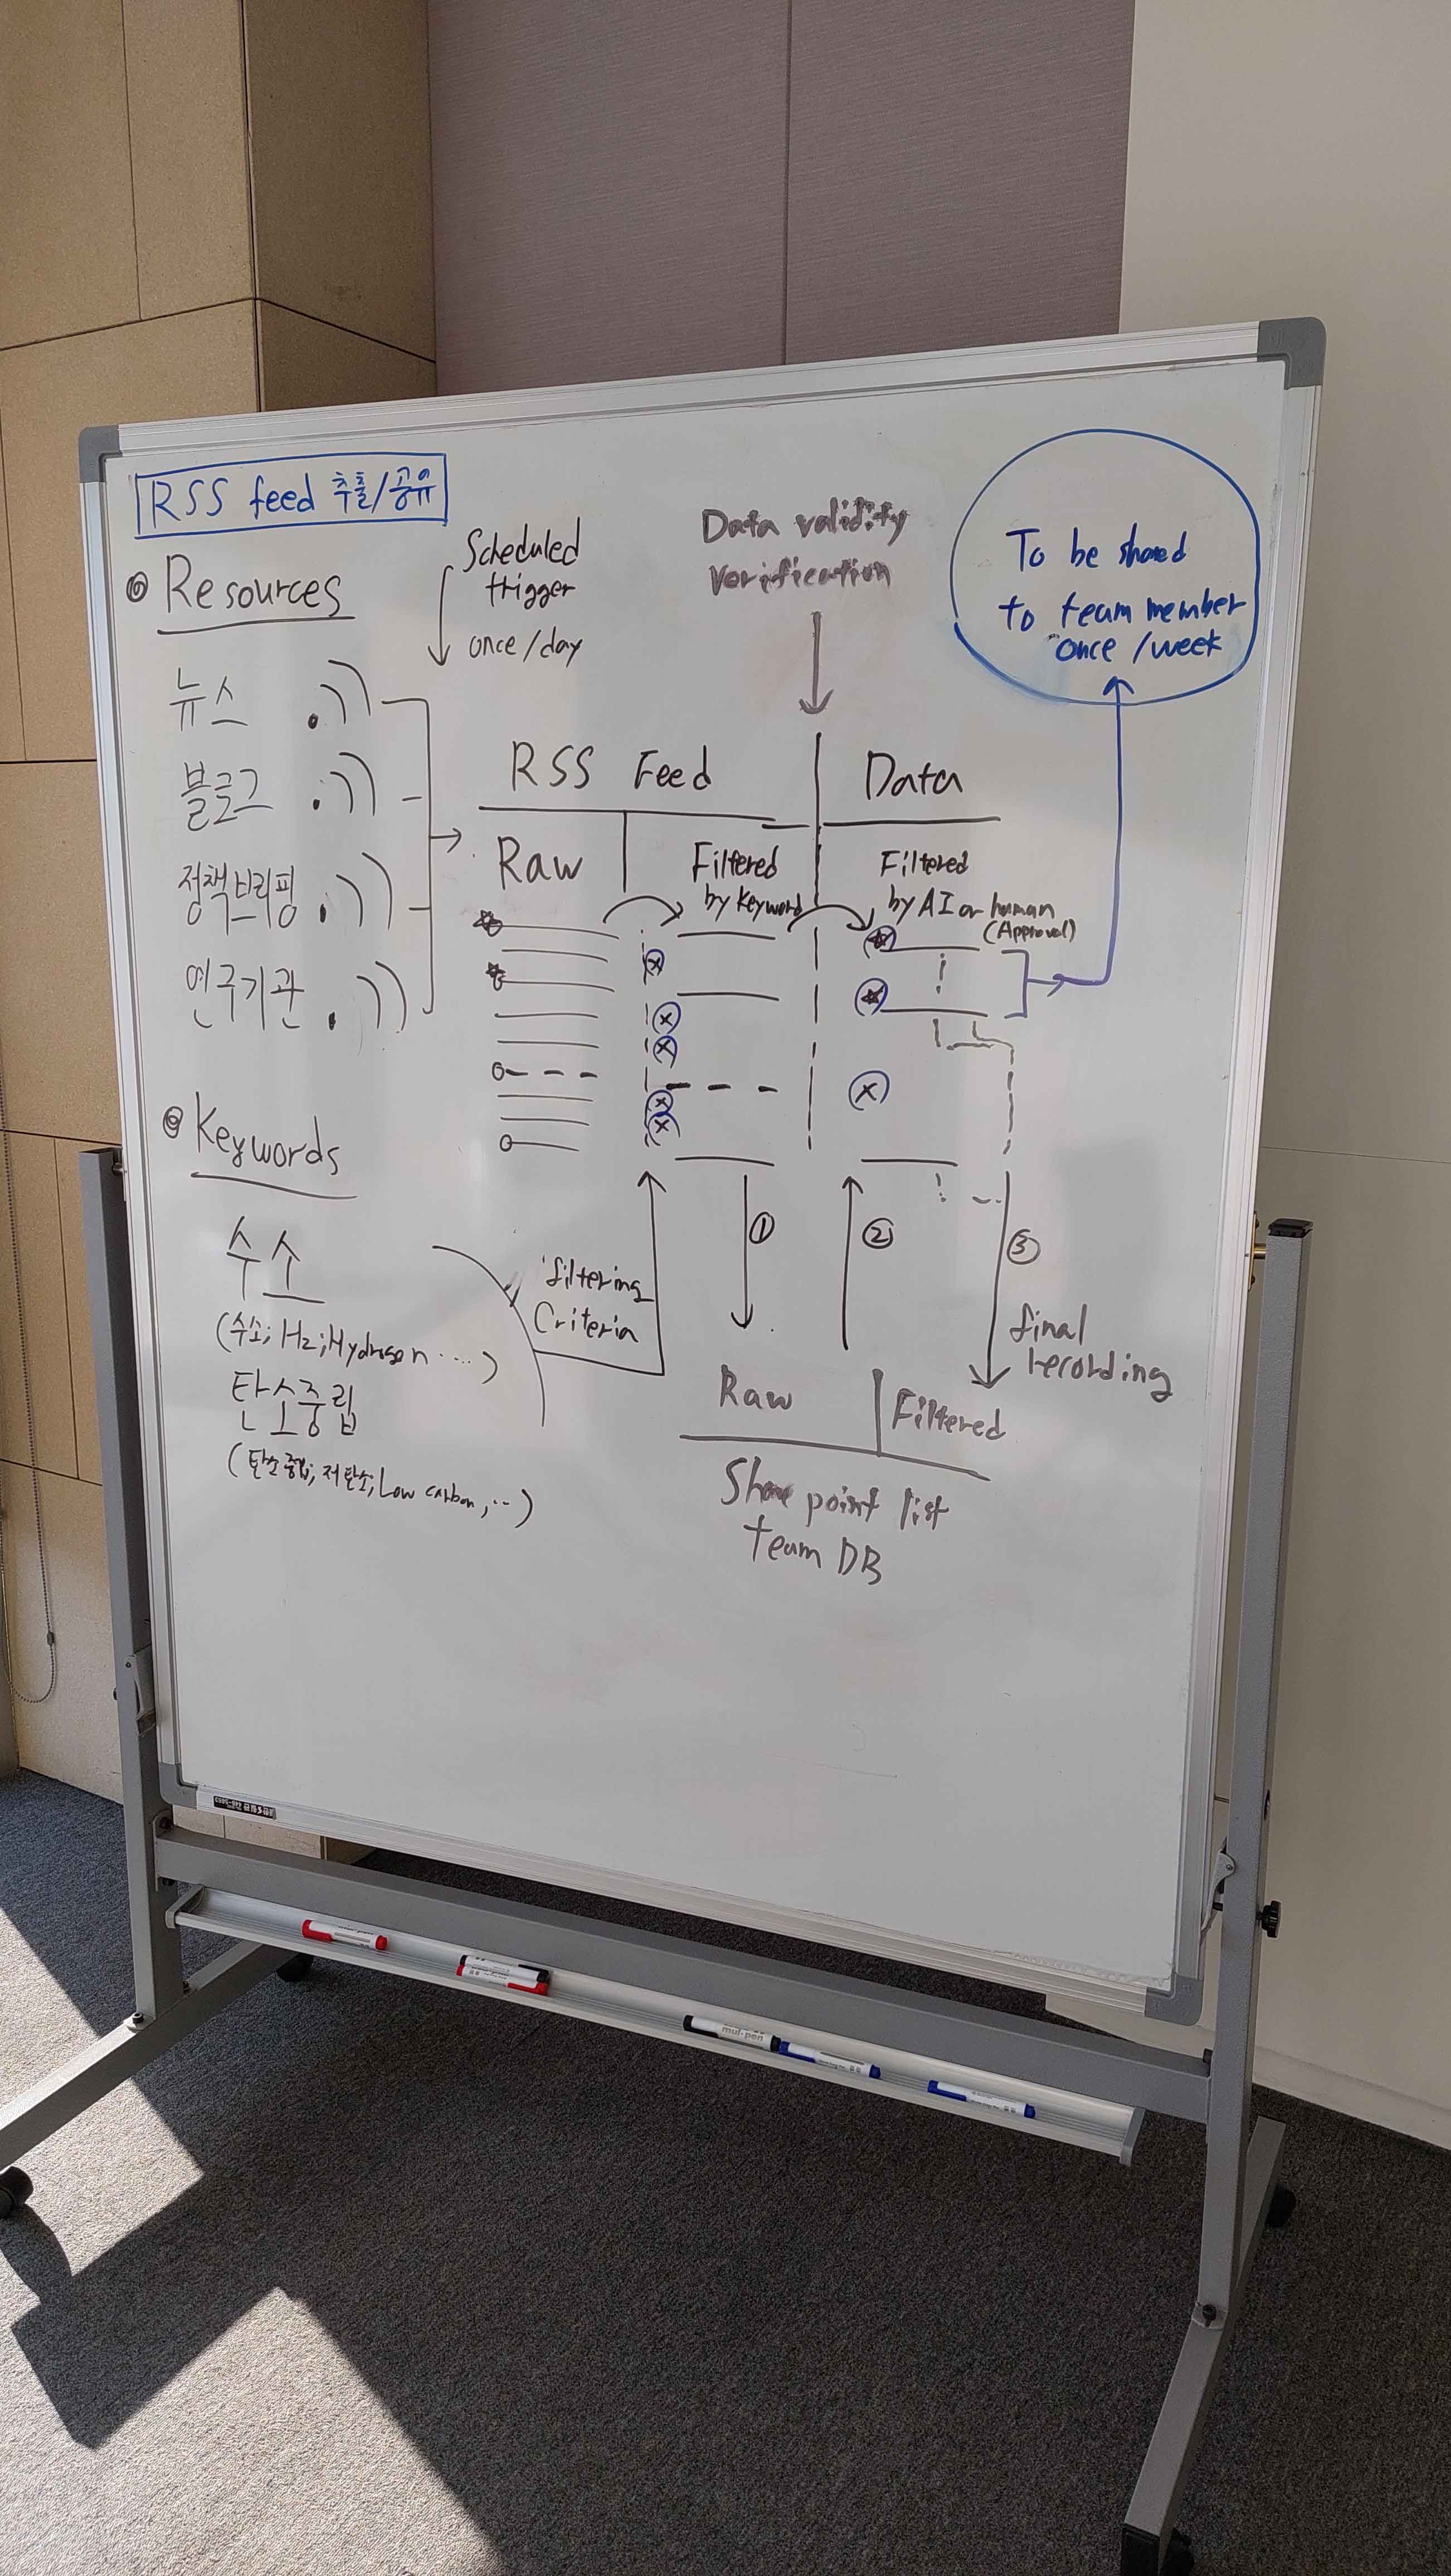 RSS feed 추출/공유
Resources
뉴스
블로그
정책브리핑
연구기관
Scheduled
trigger
once/day
Data validity
verification
To be shared
to team member
once/week
RSS Feed Data
Raw
Filtered
by Keyword
Filtered
by AI or human
(Approval)
Keywords
수소
(수소; H2; Hydrogen ....)
탄소중립
(탄소중립; 저탄소; Low carbon, ..)
filtering
Criteria
①
②
③
final
recording
Raw Filtered
Share point list
team DB
mul-pen